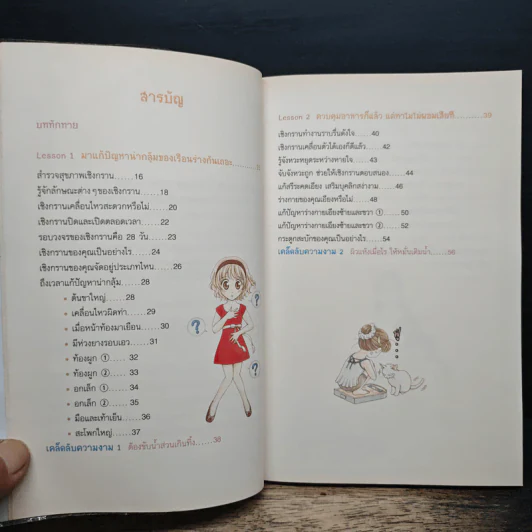 สารบัญ
บททักทาย
Lesson 1 มาแก้ปัญหาน่ากลุ้มของเรือนร่างกันเถอะ
สำรวจสุขภาพเชิงกราน......16
รู้จักลักษณะต่าง ๆ ของเชิงกราน........18
เชิงกรานเคลื่อนไหวสะดวกหรือไม่......20
เชิงกรานปิดและเปิดตลอดเวลา......22
รอบวงจรของเชิงกรานคือ 28 วัน......23
เชิงกรานของคุณเป็นอย่างไร......24
เชิงกรานของคุณจัดอยู่ประเภทไหน......26
ถึงเวลาแก้ปัญหาน่ากลุ้ม......28
• ต้นขาใหญ่......28
• เคลื่อนไหวผิดท่า......29
• เมื่อหน้าท้องมาเยือน......30
• มีห่วงยางรอบเอว......31
• ท้องผูก ①...... 32
• ท้องผูก ②...... 33
• อกเล็ก ①...... 34
• อกเล็ก ②...... 35
• มือและเท้าเย็น......36
• สะโพกใหญ่......37
เคล็ดลับความงาม 1 ต้องขับน้ำส่วนเกินทิ้ง......38
? ?
Lesson 2 ควบคุมอาหารก็แล้ว 39
เชิงกรานทำงานราบรื่นดังใจ......40
เชิงกรานเคลื่อนตัวได้เองก็ดีแล้ว......42
รู้จังหวะหยุดระหว่างหายใจ......43
จับจังหวะถูก ช่วยให้เชิงกรานตอบสนอง......44
แก้สรีระคดเอียง เสริมบุคลิกสง่างาม......46
ร่างกายของคุณเอียงหรือไม่......48
แก้ปัญหาร่างกายเอียงซ้ายและขวา ①......50
แก้ปัญหาร่างกายเอียงซ้ายและขวา ②......52
กระดูกสะบักของคุณเป็นอย่างไร......54
เคล็ดลับความงาม 2 ผิวแห้งเมื่อไร ให้หมั่นเติมน้ำ......56